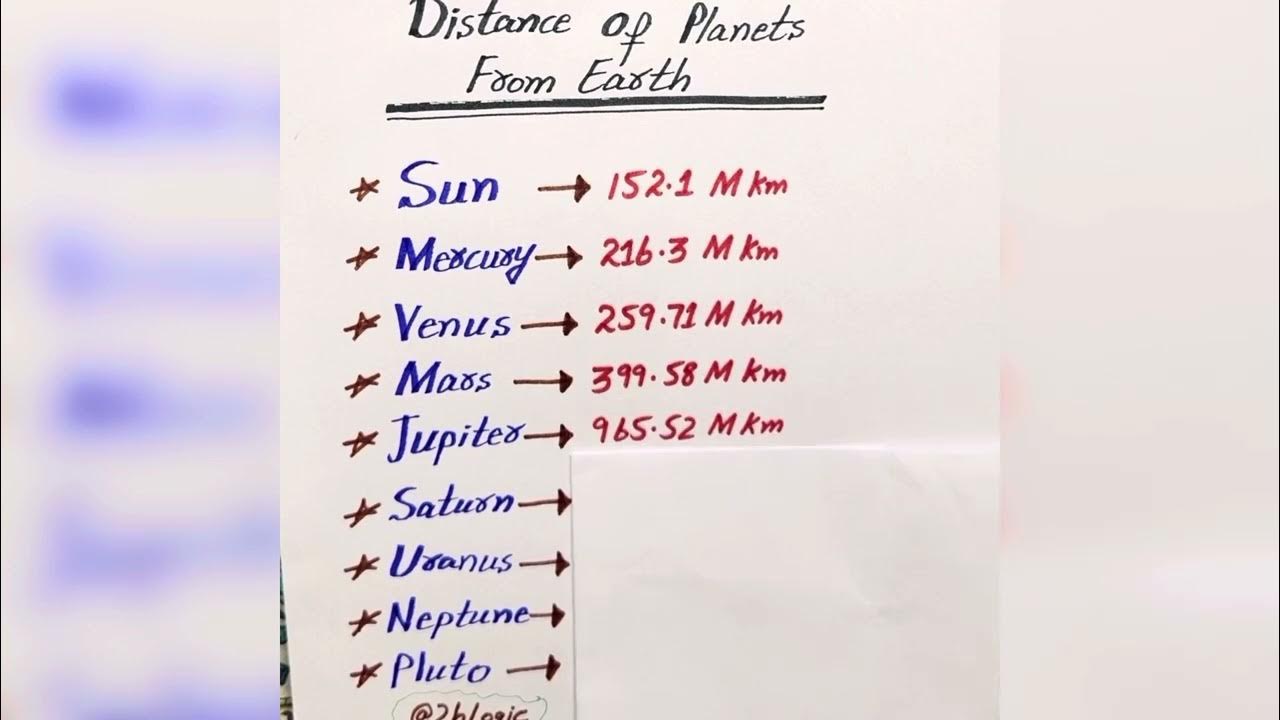 Distance of Planets
From Earth
Sun → 152.1 M Km
Mercury → 216.3 M Km
Venus → 259.71 M Km
Mars → 399.58 M Km
Jupiter → 965.52 M Km
Saturn →
Uranus →
Neptune →
Pluto →
@2bLogic